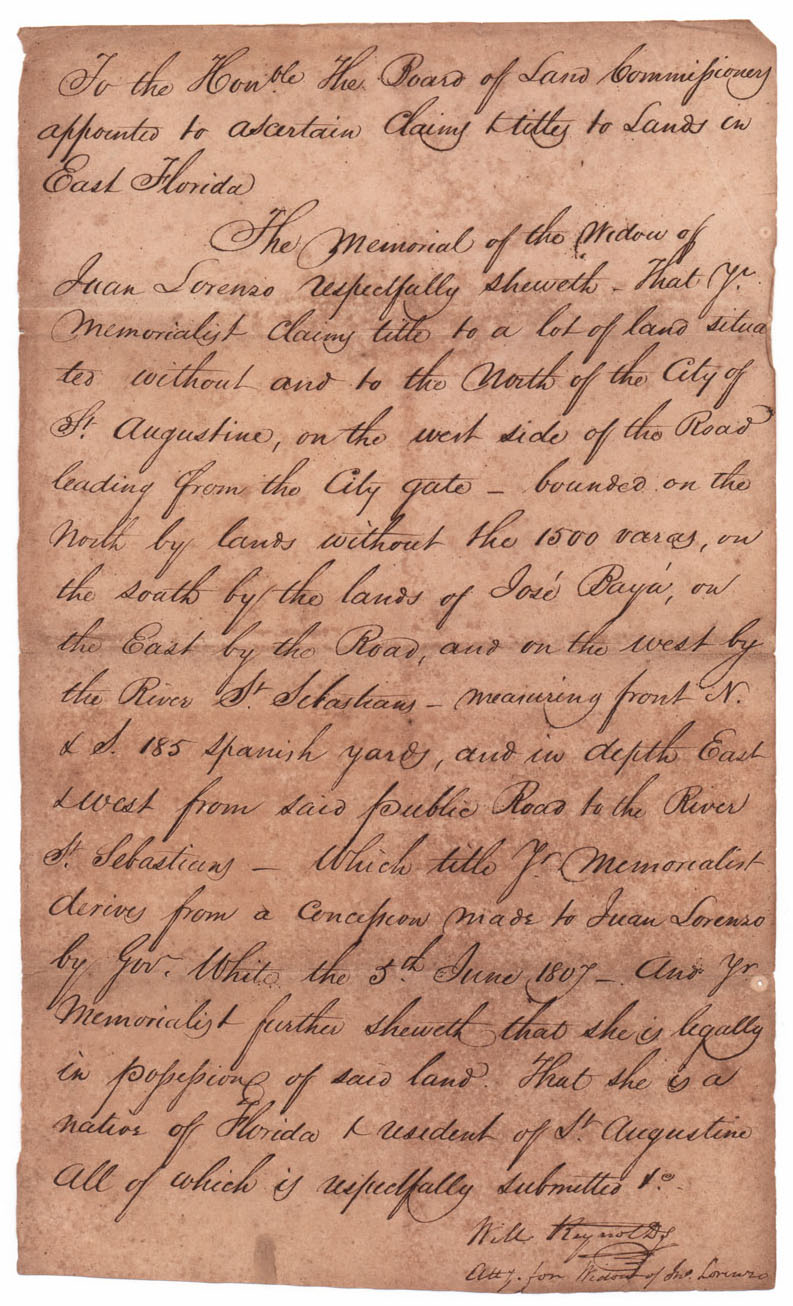 To the Honble The Board of Land Commissioners
appointed to ascertain Claims & titles to Lands in
East Florida
The Memorial of the Widow of
Juan Lorenzo respectfully sheweth - That Yr.
Memorialist Claims title to a lot of land situa
ted without and to the North of the City of
St. Augustine, on the west side of the Road
leading from the City gate - bounded on the
North by lands without the 1500 varas, on
the south by the lands of José Baya, on
the East by the Road, and on the west by
the River St. Sebastians - measuring front N.
& S. 185 spanish yards, and in depth East
& west from said public Road to the River
St. Sebastians - Which title Yr. Memorialist
derives from a Concession made to Juan Lorenzo
by Gov. White the 5th June 1807 - And Yr
Memorialist further sheweth that she is legally
in possession of said land. That she is a
native of Florida & resident of St. Augustine
All of which is respectfully submitted &c.
Will Reynolds
Atty. for Widow of Jno. Lorenzo